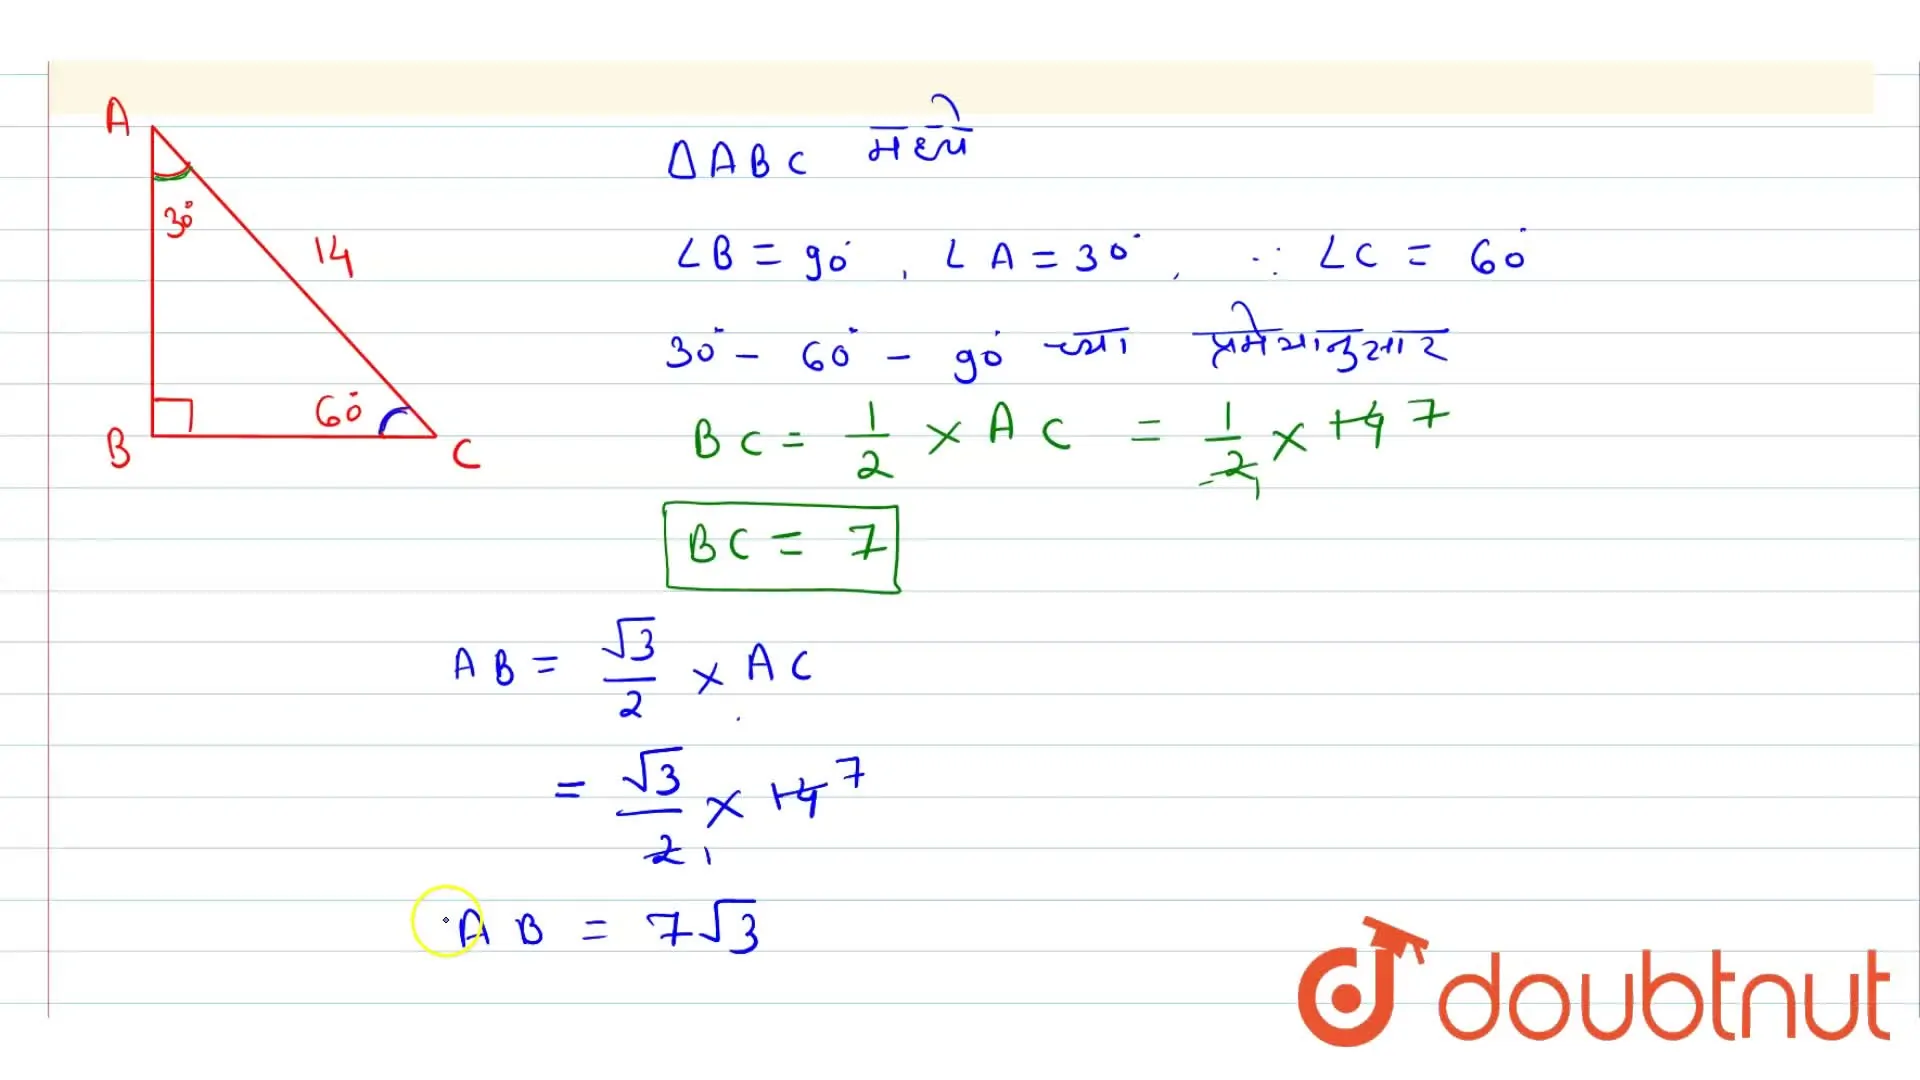 A
30°
14
60°
B
C
ΔABC मध्ये
∠B = 90°, ∠A = 30°, ∴ ∠C = 60°
30° - 60° - 90° च्या प्रमेयानुसार
BC = 1/2 × AC = 1/2 × 14 7
1
BC = 7
AB = √3/2 × AC
= √3/2 × 14 7
1
AB = 7√3
doubtnut